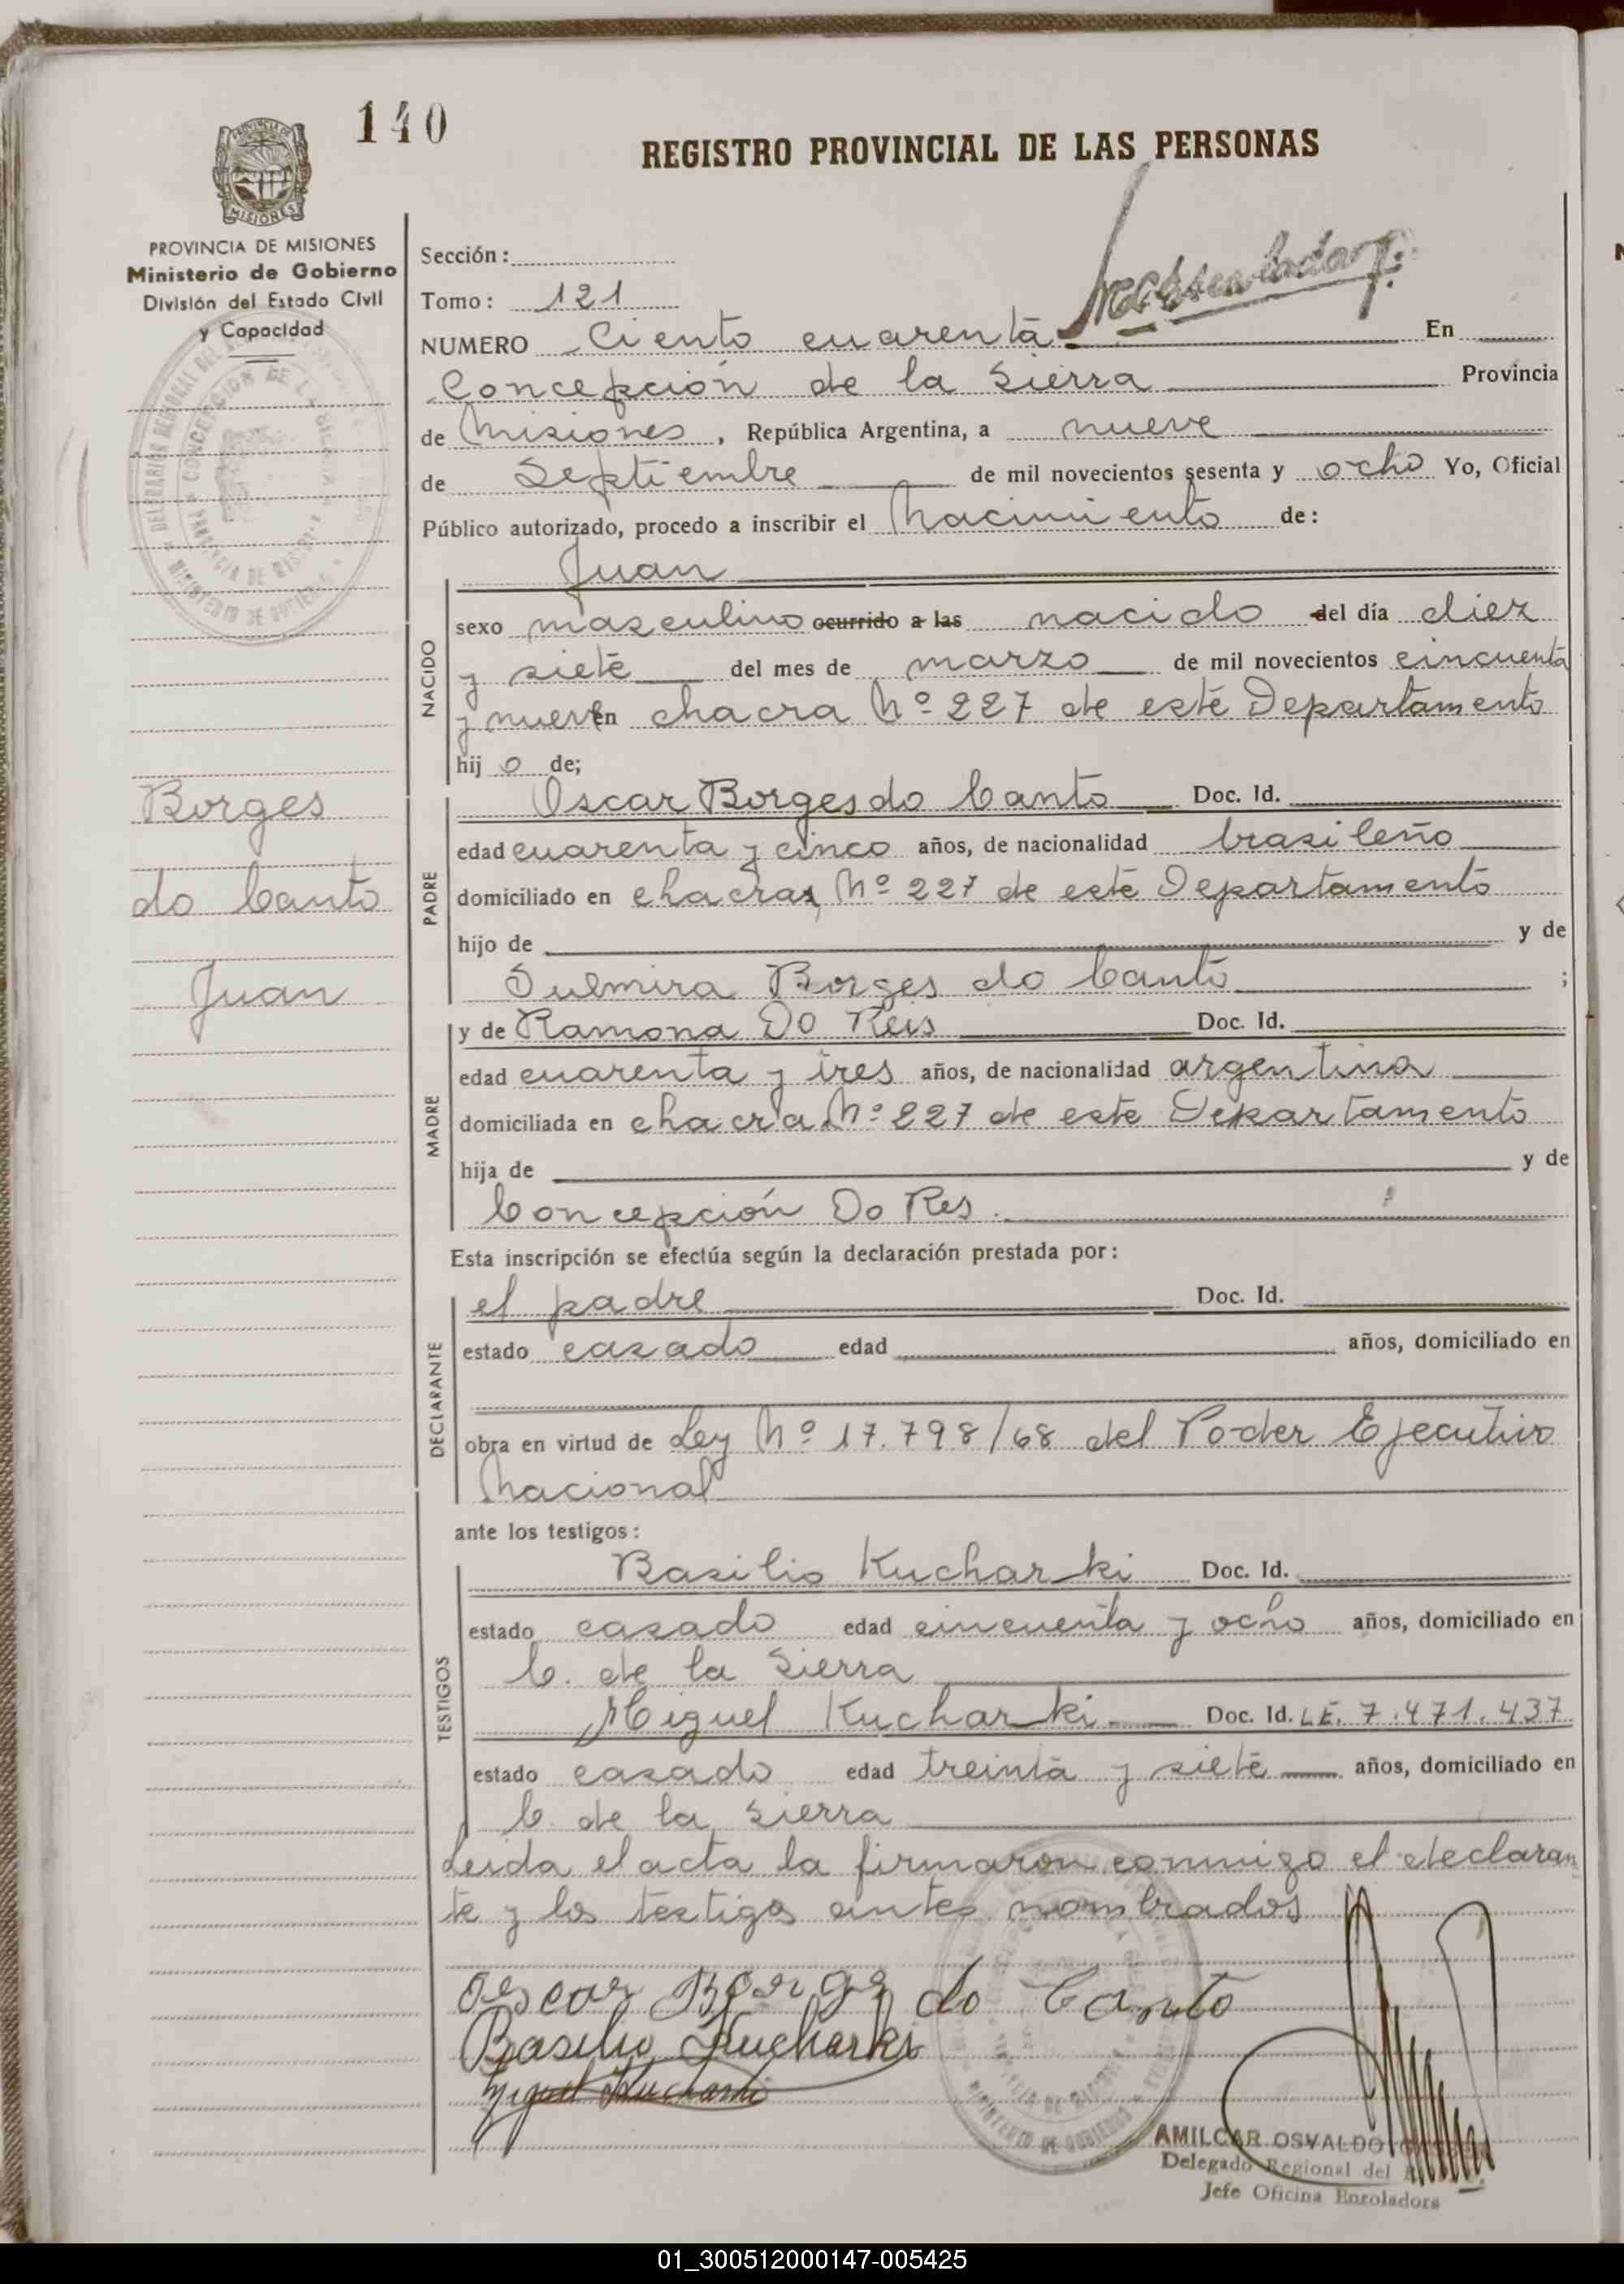 140
REGISTRO PROVINCIAL DE LAS PERSONAS
MISIONES
PROVINCIA DE MISIONES
Ministerio de Gobierno
División del Estado Civil
y Capacidad
Sección:
Tomo: 121
NUMERO Ciento cuarenta En
Concepción de la Sierra Provincia
de Misiones, República Argentina, a nueve
de Septiembre de mil novecientos sesenta y ocho Yo, Oficial
Público autorizado, procedo a inscribir el Nacimiento de:
Juan
NACIDO
sexo masculino ocurrido a las nacido del día diez
y siete del mes de marzo de mil novecientos cincuenta
y nueve en chacra Nº 227 de este Departamento
hij o de;
Borges
do Canto
Juan
PADRE
Oscar Borges do Canto Doc. Id.
edad cuarenta y cinco años, de nacionalidad brasileño
domiciliado en chacra Nº 227 de este Departamento
hijo de y de
Borges do Canto ;
MADRE
y de Ramona Do Reis Doc. Id.
edad cuarenta y tres años, de nacionalidad argentina
domiciliada en chacra Nº 227 de este Departamento
hija de y de
Concepción Do Res.
Esta inscripción se efectúa según la declaración prestada por:
DECLARANTE
el padre Doc. Id.
estado casado edad años, domiciliado en
obra en virtud de Ley Nº 17.798/68 del Poder Ejecutivo
Nacional
ante los testigos:
TESTIGOS
Basilio Kucharki Doc. Id.
estado casado edad cincuenta y ocho años, domiciliado en
C. de la Sierra
Miguel Kucharki Doc. Id. L.E. 7.471.437
estado casado edad treinta y siete años, domiciliado en
C. de la Sierra
Leida el acta la firmaron conmigo el declaran
te y los testigos antes nombrados
Oscar Borge do Canto
Basilio Kucharki
Miguel Kucharki
AMILCAR OSVALDO
Delegado Regional del
Jefe Oficina Enroladora
01_300512000147-005425